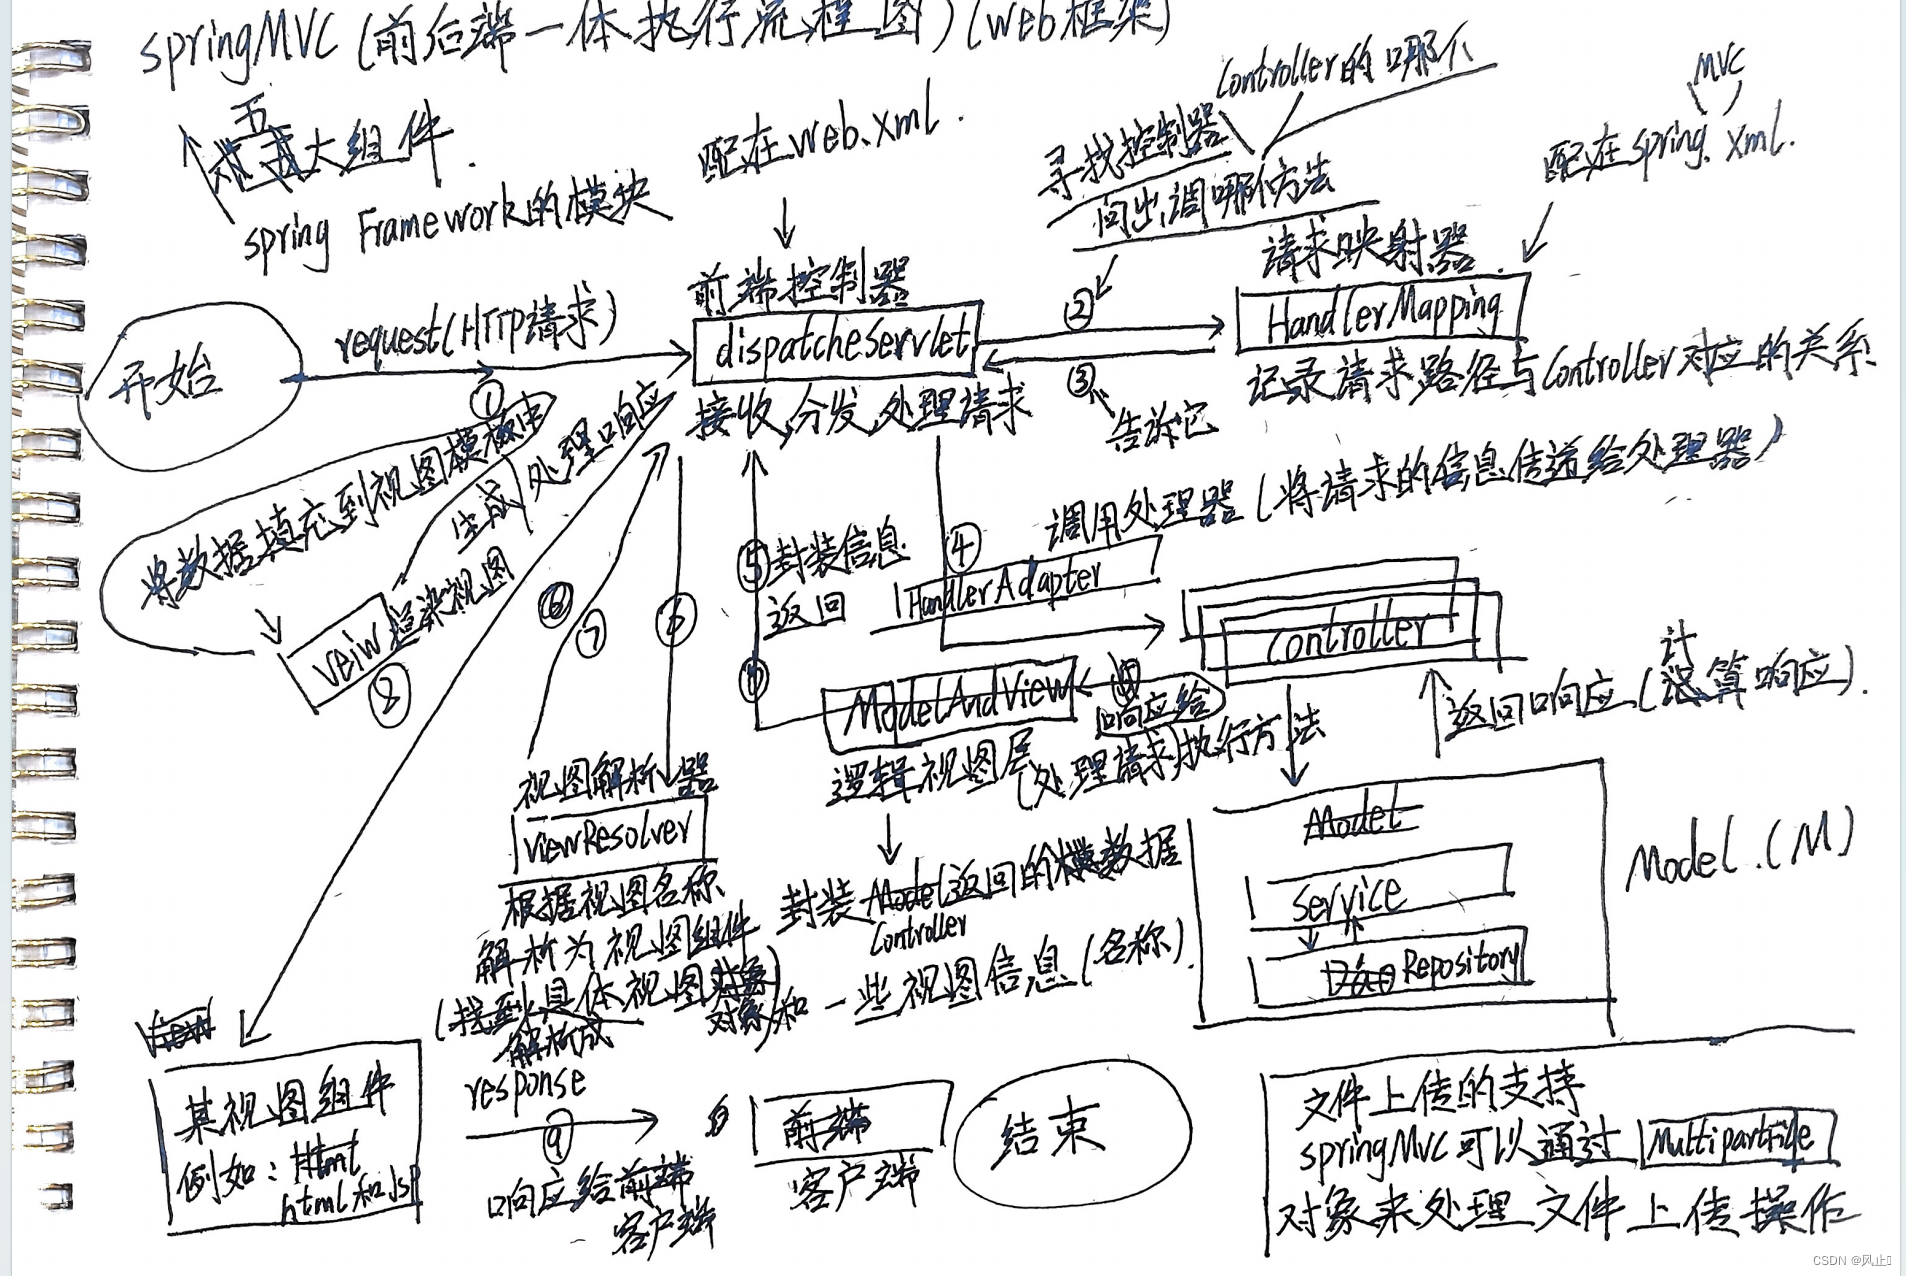 springMVC(前后端一体执行流程图)(web框架)
五大组件.
spring Framework的模块
配在web.xml.
Controller的哪个
寻找控制器
问出,调哪个方法
MVC
配在spring.xml.
请求映射器.
前端控制器
开始
request(HTTP请求)
①
dispatcheServlet
②
③
告诉它
HandlerMapping
记录请求路径与Controller对应的关系
接收,分发,处理请求
将数据填充到视图模板中
生成
处理响应
veiw
渲染视图
⑧
⑦
⑥
⑤封装信息
返回
④
调用处理器(将请求的信息传递给处理器)
HandlerAdapter
Controller
ModelAndView
响应给
逻辑视图层
(处理请求)执行方法
返回响应(计算响应).
视图解析器
viewResolver
根据视图名称
解析为视图组件
(找到具体视图对象)
解析成
封装Model返回的模数据
Controller
对象和一些视图信息(名称).
Model
Service
Dao Repository
Model.(M)
view
某视图组件
例如: Html
html和jsp
response
⑨
响应给前端
客户端
前端
客户端
结束
文件上传的支持
springMVC可以通过 MultipartFile
对象来处理文件上传操作
CSDN @风止